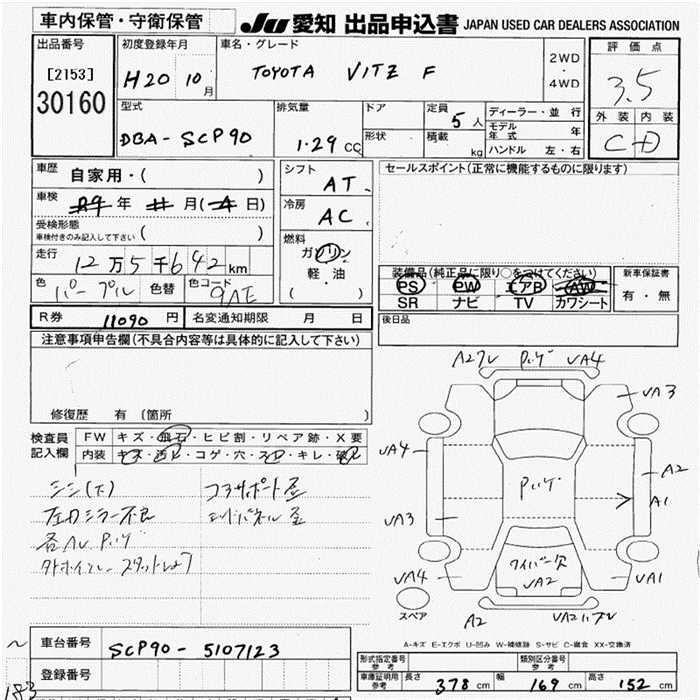 車内保管・守衛保管
JU 愛知 出品申込書 JAPAN USED CAR DEALERS ASSOCIATION
出品番号
[2153]
30160
初度登録年月
H20 10月
車名・グレード
TOYOTA VITZ F
2WD・4WD
評価点
3.5
外装 内装
C D
型式
DBA-SCP90
排気量
1.29 CC
ドア
形状
定員 5人
積載 kg
ディーラー・並行
モデル年式 年
ハンドル 左・右
車歴 自家用・( )
車検 年 月( 日)
受検形態
車検付きのみ記入して下さい ( )
走行
12万5千642km
色 パープル 色替 色コード 9AE
シフト AT
冷房 AC
燃料
ガソリン
軽・油
( )
セールスポイント(正常に機能するものに限ります)
装備品(純正品に限り○をつけてください)
PS PW エアB AW
SR ナビ TV カワシート
新車保証書
有・無
R券 11090円 名変通知期限 月 日
後日品
注意事項申告欄(不具合内容等は具体的に記入して下さい)
修復歴 有(箇所 )
検査員記入欄
FW キズ・飛石・ヒビ割・リペア跡・X要
内装 キズ・汚れ・コゲ・穴・スレ・キレ・破れ
シシ(下)
コアサポート歪
左Dミラー不良
各AU Pハゲ
Pハゲ UA4
UA3
UA4
A2
Pハゲ
A1
UA3
ワイパー欠
UA2
UA4
UA1
スペア
A2
A-キズ E-エクボ U-凹み W-補修跡 S-サビ C-腐食 XX-交換済
車台番号 SCP90-5107123
登録番号
183
形式指定番号 参考
類別区分番号 参考
車庫証明用 参考 長さ 378 cm 幅 169 cm 高さ 152 cm